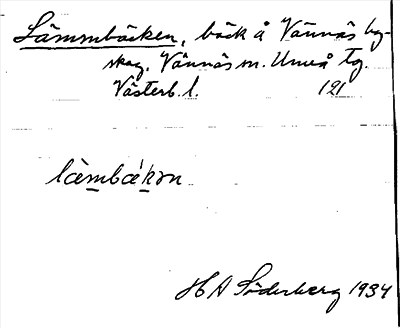 Lämmbäcken, bäck å Vännäs by-
skog. Vännäs sn. Umeå tg.
Västerb. l. 121
làmbǽkən
H A Söderberg 1934